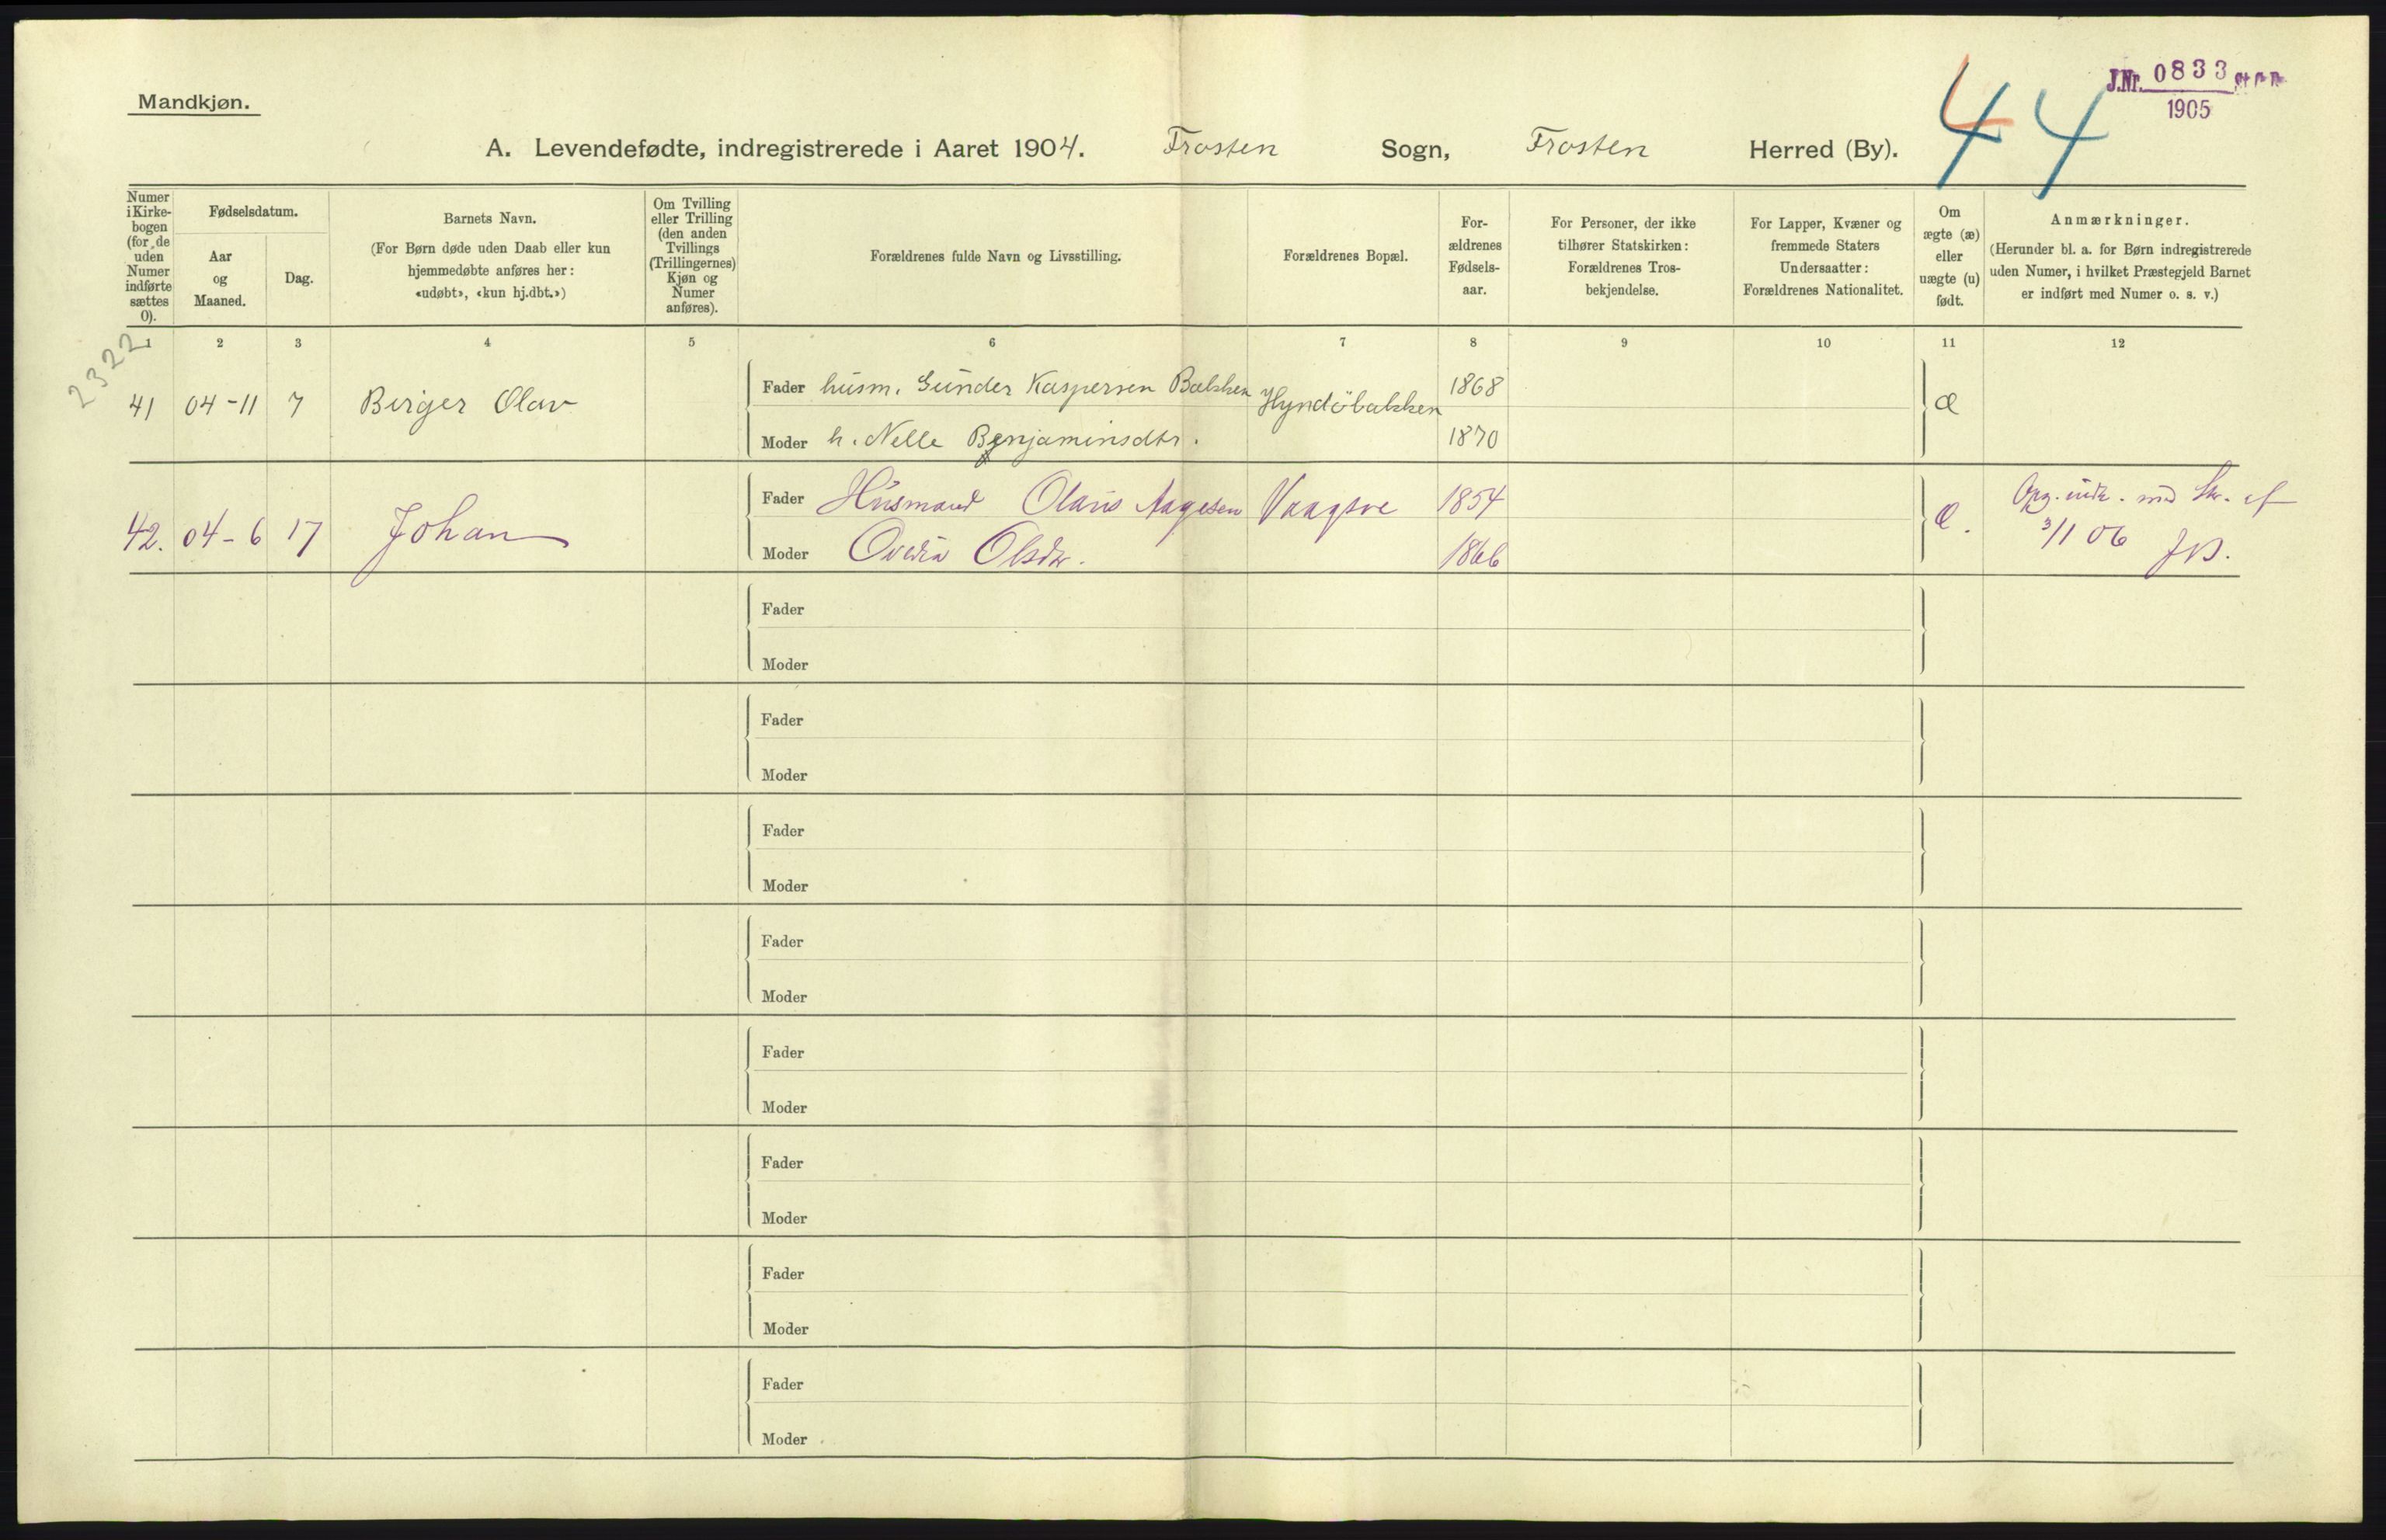 Mandkjøn.
J.Nr. 0833
1905
44
A. Levendefødte, indregistrerede i Aaret 1904. Frosten Sogn, Frosten Herred (By).
Numer i Kirke-bogen (for de uden Numer indførte sættes 0).
Fødselsdatum.
Aar og Maaned.
Dag.
Barnets Navn.
(For Børn døde uden Daab eller kun hjemmedøbte anføres her: «udøbt», «kun hj.dbt.»)
Om Tvilling eller Trilling (den anden Tvillings (Trillingernes) Kjøn og Numer anføres).
Forældrenes fulde Navn og Livsstilling.
Forældrenes Bopæl.
For-ældrenes Fødsels-aar.
For Personer, der ikke tilhører Statskirken: Forældrenes Tros-bekjendelse.
For Lapper, Kvæner og fremmede Staters Undersaatter: Forældrenes Nationalitet.
Om ægte (æ) eller uægte (u) født.
Anmærkninger.
(Herunder bl. a. for Børn indregistrerede uden Numer, i hvilket Præstegjeld Barnet er indført med Numer o. s. v.)
1 2 3 4 5 6 7 8 9 10 11 12
2322
41 04-11 7 Berger Olav
Fader husm. Gunder Kaspersen Bakken Hyndöbakken 1868
Moder h. Nelle Benjaminsdtr. 1870
æ
42. 04-6 17 Johan
Fader Husmand Olaus Aagesen Vaagsve 1854
Moder Ovedia Olsdtr. 1866
æ.
Opg. indk. med Skr. af
3/1 06 JB.
Fader
Moder
Fader
Moder
Fader
Moder
Fader
Moder
Fader
Moder
Fader
Moder
Fader
Moder
Fader
Moder